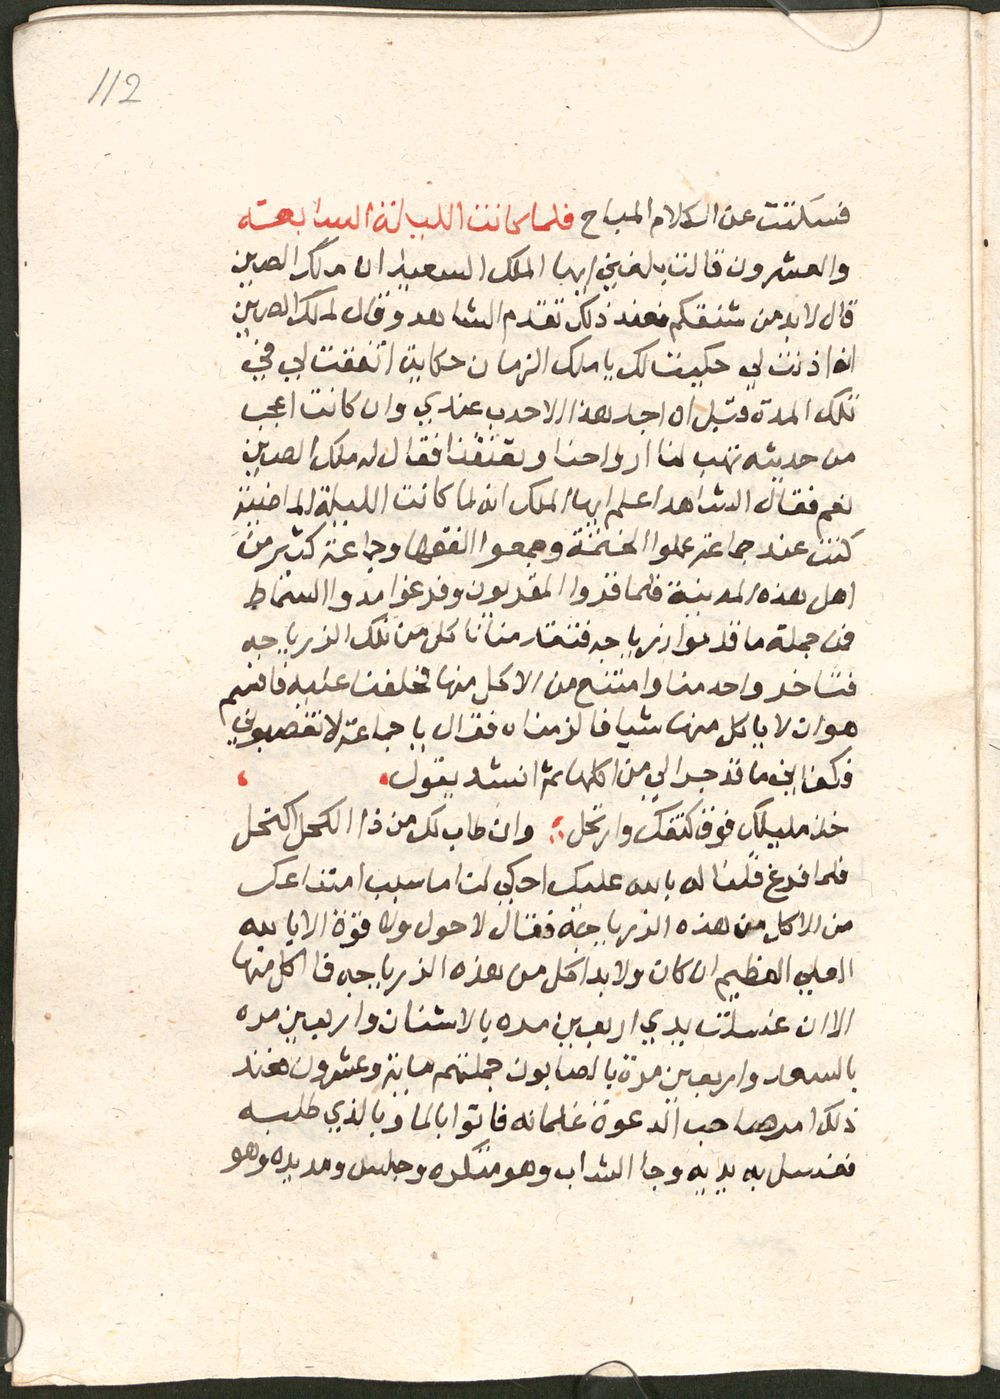 112
فسكتت عن الكلام المباح فلما كانت الليلة السابعة
والعشرون قالت بلغني ايها الملك السعيد ان ملك الصين
قال لا بد من شنقكم فعند ذلك تقدم الشاهد وقال لملك الصين
ان اذنت لي حكيت لك يا ملك الزمان حكاية اتفقت لي في
تلك المدة قبل ان اجد هذا الاحدب عندي وان كانت اعجب
من حديثه تهب لنا ارواحنا وتعتقنا فقال له ملك الصين
نعم فقال الشاهد اعلم ايها الملك انه لما كانت الليلة الماضية
كنت عند جماعة عملوا الختمة وجمعوا الفقها وجماعة كثير من
اهل هذه المدينة فلما قروا المقريون وفرغوا مدوا السماط
فمن جملة ما قدموا زرباجه فتقدمنا ناكل من تلك الزرباجه
فتاخر واحد منا وامتنع من الاكل منها فحلفنا عليه فاقسم
هو ان لا ياكل منها شيا فالزمناه فقال يا جماعة لا تغصبوني
فكفاني ما قد جرا لي من اكلها ثم انشد يقول
خذ مليكك فوق كتفك وارتحل وان طاب لك من ذا الكحل اكتحل
فلما فرغ قلنا له بالله عليك احكي لنا ما سبب امتناعك
من الاكل من هذه الزرباجة فقال لا حول ولا قوة الا بالله
العلي العظيم ان كان ولا بد اكل من هذه الزرباجه فا اكل منها
الا ان غسلت يدي اربعين مره بالاشنان واربعين مره
بالسعد واربعين مرة بالصابون جملتهم ماية وعشرون فعند
ذلك امر صاحب الدعوة غلمانه فاتوا بالما وبالذي طلبه
فغسل به يديه وجا الشاب وهو متكره وجلس ومد يده وهو